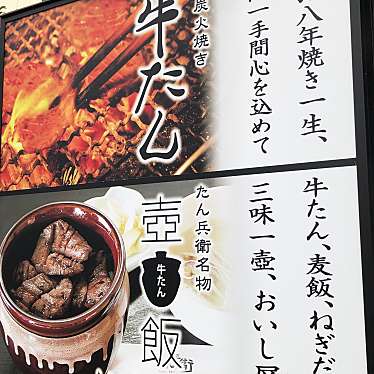 八年焼き一生、
一手間心を込めて
炭火焼き
牛たん
牛たん、麦飯、ねぎだ
三味一壺、おいし
たん兵衛名物
壺
牛たん
飯